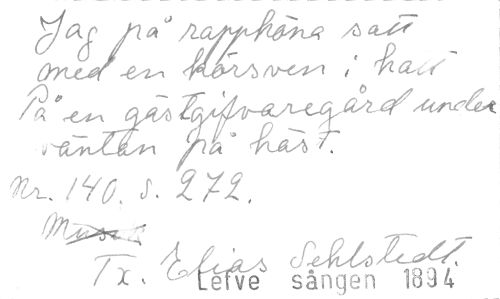 Jag på rapphöna satt
med en körsven i hatt
På en gästgifvaregård under
väntan på häst.
Nr. 140. s. 272.
Musik
Tx. Elias Sehlstedt.
Lefve sången 1894